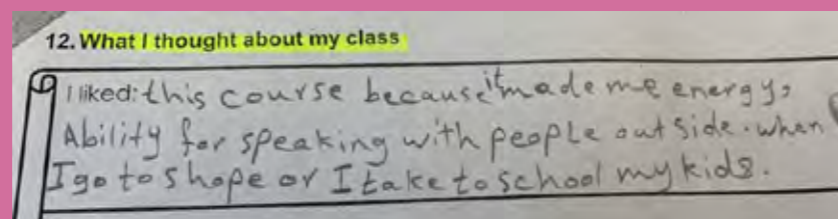 12. What I thought about my class
I liked: this course because it made me energy,
Ability for speaking with people out side. when
I go to shope or I take to school my kids.